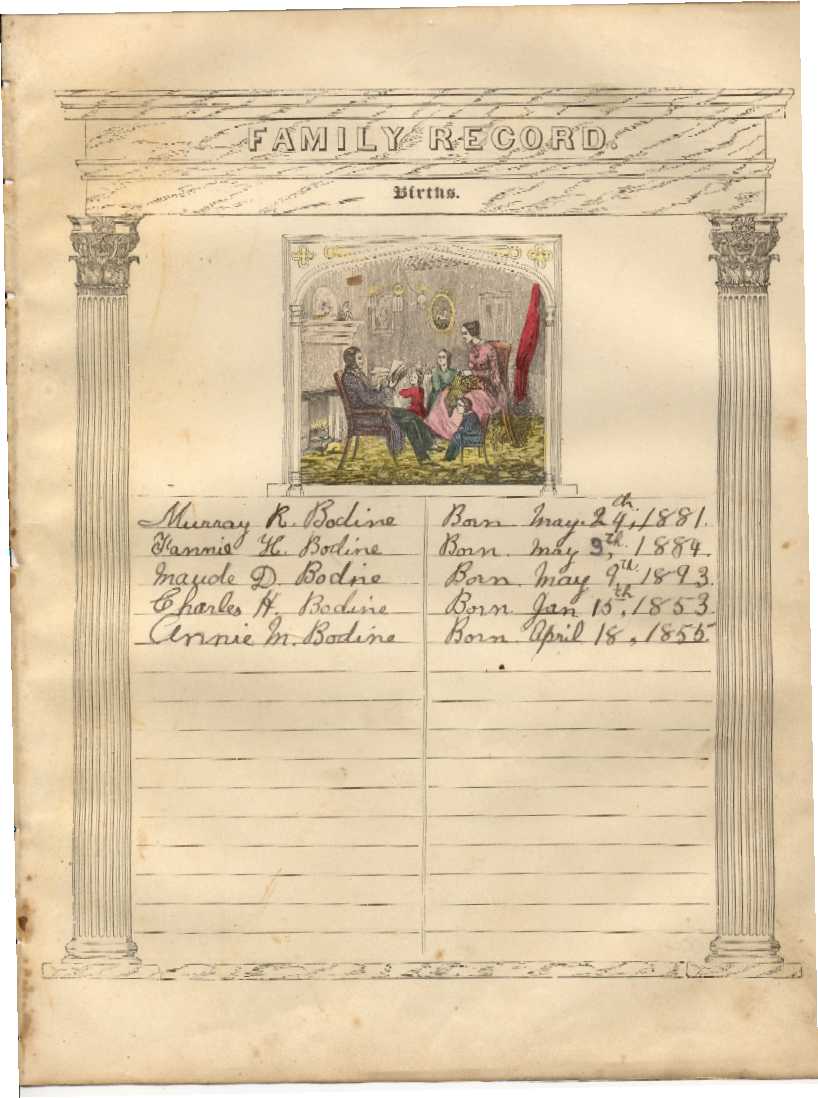 FAMILY RECORD.
Births.
Murray R. Bodine Born May. 24th, 1881.
Fannie H. Bodine Born May 9th, 1884.
Maude D. Bodine Born May 9th, 1893.
Charles H. Bodine Born Jan 15th, 1853.
Annie M. Bodine Born April 18, 1855